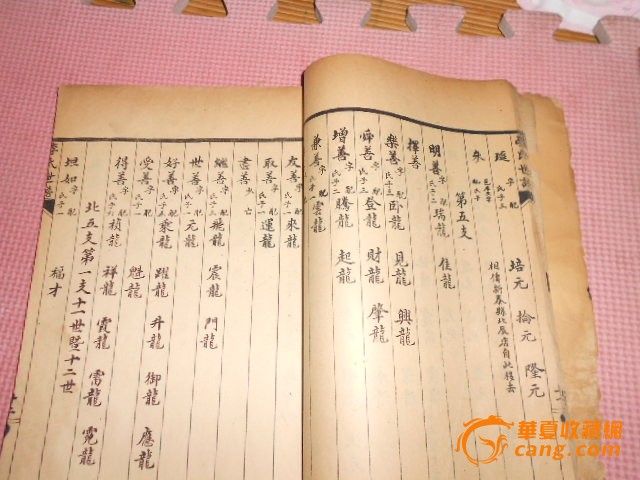 珽 字 配 氏 子三 培元 拾元 隆元
朱 配 氏 子 相傳新泰縣北辰店自此移去
第五支
明善 字 配 氏子二 瑞龍 佳龍
擇善
樂善 字 配 氏子三 卧龍 見龍 興龍
舜善 字 配 氏子三 登龍 財龍 肇龍
增善 字 配 氏子二 騰龍 起龍
兼善 字 配 氏子一 雲龍
氏世譜
友善 字 配 氏子一 來龍
取善 字 配 氏子一 運龍
書善 少亡
繼善 字 配 氏子三 飛龍 震龍 門龍
世善 字 配 氏子一 元龍
好善 字 配 氏子五 乘龍 躍龍 升龍 御龍 應龍
受善 字 配 氏子一 魁龍
得善 字 配 氏子 楨龍 祥龍 霞龍 雷龍 霓龍
北五支第一支十一世暨十二世
坦如 字 配 氏子一 福才
氏世譜
華夏收藏網
cang.com